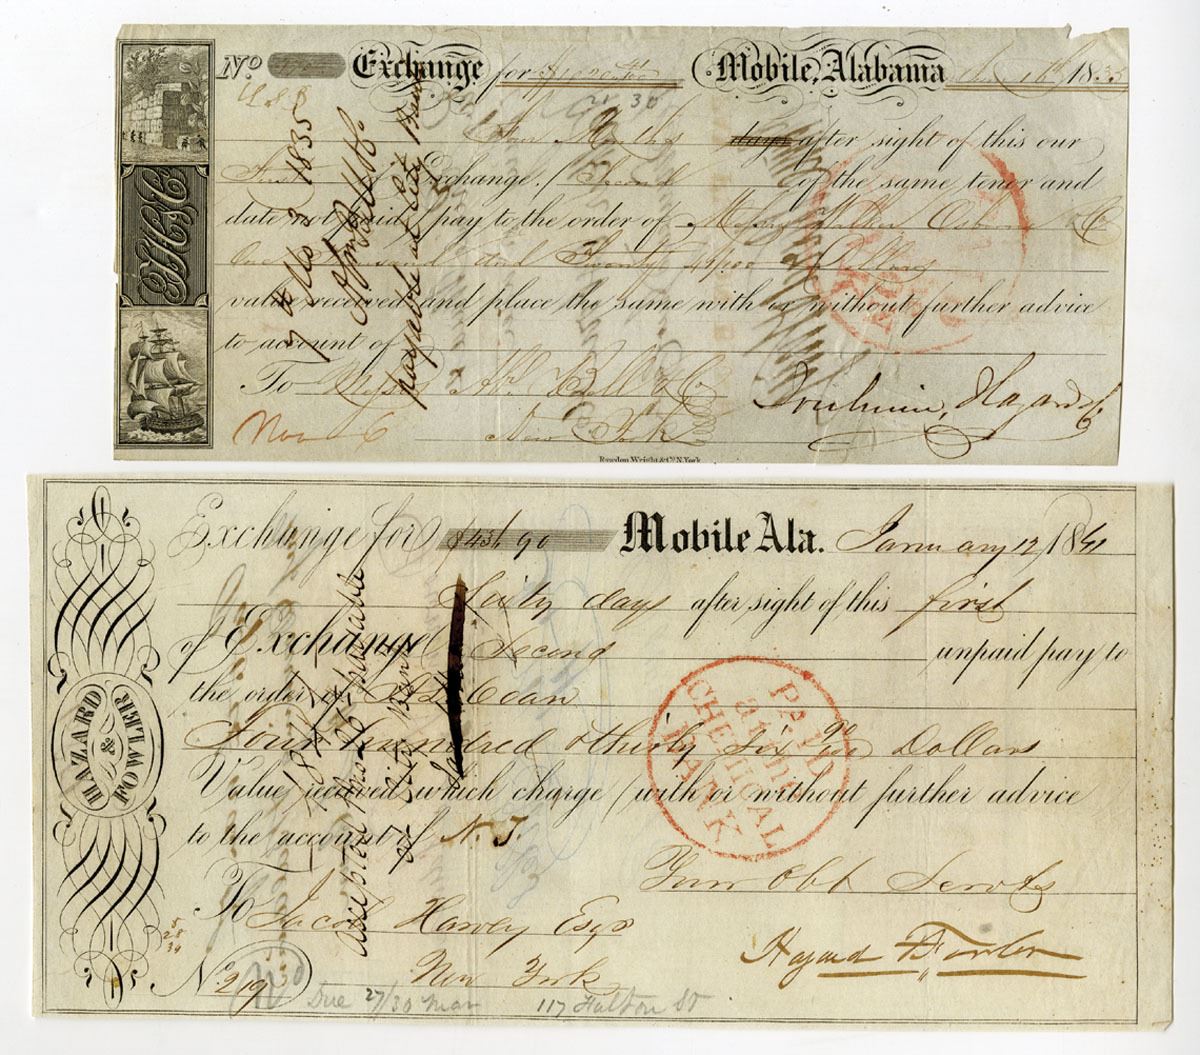 No Exchange for $1020 Mobile, Alabama 18
Four Months days after sight of this our
First of Exchange, Second of the same tenor and
date not paid pay to the order of Messrs Walker Osborne & Co
One Thousand and Twenty 41/100 Dollars
value received and place the same with or without further advice
to account of
To Messrs Bell & Co
New York
Nov 6
Hazard & Co
payable at City Bank
1835
Rawdon, Wright & Co. N. York
PAID
Exchange for $436 90 Mobile Ala. January 12, 1841
Sixty days after sight of this first
of Exchange Second unpaid pay to
the order of Coan
Four hundred & thirty six 90/100 Dollars
Value received which charge (with or without further advice
to the account of N. J.
Your Obt Servts
To Jacob Harvey Esqr
New York
Hazard & Fowler
No 219
Due 27/30 Mar 117 Fulton St
HAZARD & FOWLER
accepted payable
at City Bank
PAID
at the
CHEMICAL
BANK
5
28
34